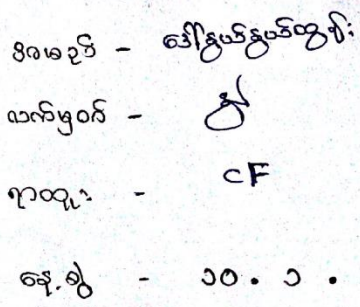 အမည် - ဒေါ်နွယ်နွယ်ထွန်း
လက်မှတ် - နွယ်
ရာထူး - CF
နေ့ရွဲ - ၁၀.၁.